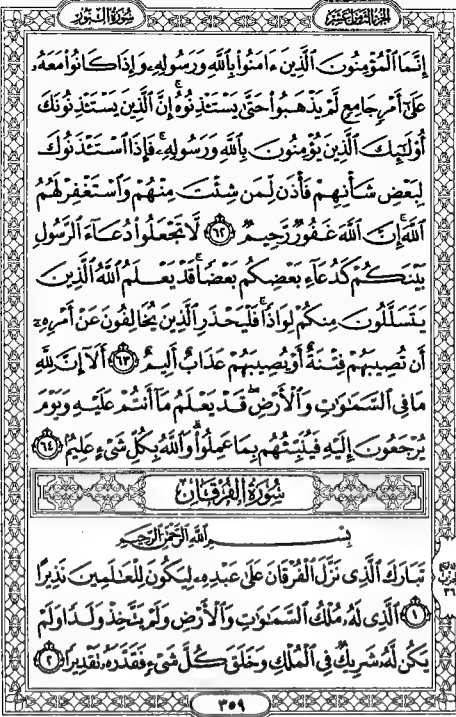 سُورَةُ النُّورِ
الجُزْءُ الثَّامِنَ عَشَرَ
إِنَّمَا ٱلْمُؤْمِنُونَ ٱلَّذِينَ ءَامَنُوا۟ بِٱللَّهِ وَرَسُولِهِۦ وَإِذَا كَانُوا۟ مَعَهُۥ
عَلَىٰٓ أَمْرٍ جَامِعٍ لَّمْ يَذْهَبُوا۟ حَتَّىٰ يَسْتَـْٔذِنُوهُ ۚ إِنَّ ٱلَّذِينَ يَسْتَـْٔذِنُونَكَ
أُو۟لَـٰٓئِكَ ٱلَّذِينَ يُؤْمِنُونَ بِٱللَّهِ وَرَسُولِهِۦ ۚ فَإِذَا ٱسْتَـْٔذَنُوكَ
لِبَعْضِ شَأْنِهِمْ فَأْذَن لِّمَن شِئْتَ مِنْهُمْ وَٱسْتَغْفِرْ لَهُمُ
ٱللَّهَ ۚ إِنَّ ٱللَّهَ غَفُورٌ رَّحِيمٌ ٦٢ لَّا تَجْعَلُوا۟ دُعَآءَ ٱلرَّسُولِ
بَيْنَكُمْ كَدُعَآءِ بَعْضِكُم بَعْضًا ۚ قَدْ يَعْلَمُ ٱللَّهُ ٱلَّذِينَ
يَتَسَلَّلُونَ مِنكُمْ لِوَاذًا ۚ فَلْيَحْذَرِ ٱلَّذِينَ يُخَالِفُونَ عَنْ أَمْرِهِۦٓ
أَن تُصِيبَهُمْ فِتْنَةٌ أَوْ يُصِيبَهُمْ عَذَابٌ أَلِيمٌ ٦٣ أَلَآ إِنَّ لِلَّهِ
مَا فِى ٱلسَّمَـٰوَٰتِ وَٱلْأَرْضِ ۖ قَدْ يَعْلَمُ مَآ أَنتُمْ عَلَيْهِ وَيَوْمَ
يُرْجَعُونَ إِلَيْهِ فَيُنَبِّئُهُم بِمَا عَمِلُوا۟ ۗ وَٱللَّهُ بِكُلِّ شَىْءٍ عَلِيمٌۢ ٦٤
سُورَةُ الفُرْقَانِ
بِسْمِ ٱللَّهِ ٱلرَّحْمَـٰنِ ٱلرَّحِيمِ
تَبَارَكَ ٱلَّذِى نَزَّلَ ٱلْفُرْقَانَ عَلَىٰ عَبْدِهِۦ لِيَكُونَ لِلْعَـٰلَمِينَ نَذِيرًا
١ ٱلَّذِى لَهُۥ مُلْكُ ٱلسَّمَـٰوَٰتِ وَٱلْأَرْضِ وَلَمْ يَتَّخِذْ وَلَدًا وَلَمْ
يَكُن لَّهُۥ شَرِيكٌ فِى ٱلْمُلْكِ وَخَلَقَ كُلَّ شَىْءٍ فَقَدَّرَهُۥ تَقْدِيرًا ٢
الحزب
٣٦
٣٥٩